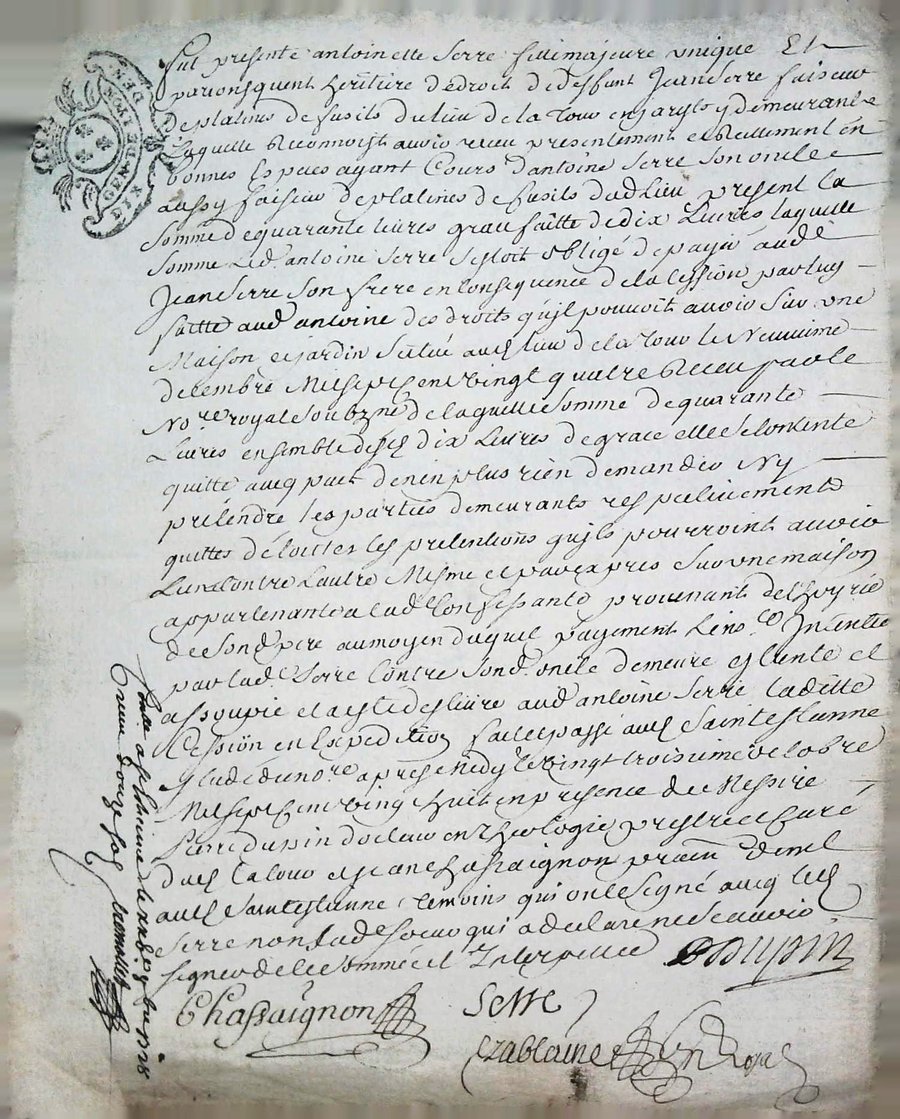 GEN. DE LYON
DIX DEN
Fut presente antoinette Serre fille majeure unique Et
par consequent heritiere de droit de deffunt Jean Serre faiseur
de platines de fusils du lieu de la Tour en jarest y demeurante
Laquelle Reconnoist avoir receu presentement et Reellement en
bonnes Especes ayant Cours d'antoine Serre son oncle
aussy faiseur de platines de fusils dud lieu present la
somme de quarante livres grace faitte de dix Livres laquelle
somme Led. antoine Serre s'estoit obligé de payer aud
Jean Serre son frere en Consequence de la Cession par luy
faitte aud antoine des droits qu'il pouvoit avoir sur une
Maison et jardin scitué aud lieu de la Tour le Neuvieme
decembre Mil sept cent vingt quatre Receu par le
No.re royal soubzné de laquelle somme de quarante
Livres ensemble desd dix Livres de grace elle se Contente
quitte avec pact de n'en plus rien demander Ny
pretendre les parties demeurants respectivement
quittes de touttes les pretentions qu'ils pourroint avoir
L'un Contre L'autre Mesme et par expres sur une maison
appartenante a lad Confessante provenant de l'hoyrie
de sond pere au moyen duquel payement L'ins.ce Intentée
par lad Serre Contre sond. oncle demeure esteinte et
assoupie et a esté deslivré aud antoine Serre ladette
Cession en Expedition fait et passé aud Saint estienne
Estude dud no.re apres Midy le vingt troisieme octobre
Mil sept Cent vingt huit en presence de Messire
Pierre Dupin docteur en Theologie prestre et Curé
dud La Tour et Jean Chassaignon praticien dem.t
aud Saint estienne temoins qui ont signé avec led
Serre non lad de sceavoir
signer de ce sommée et Interpellée
Dupin
Chassaignon
Serre
No.re Royal